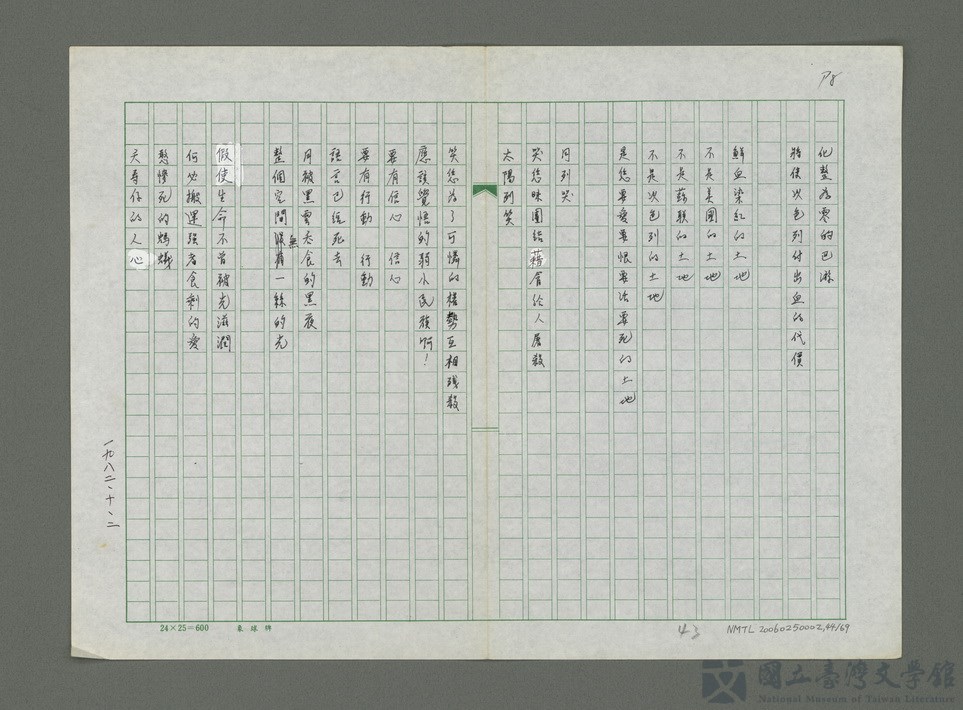 P8
化整為零的巴游
將使以色列付出血的代價
鮮血染紅的土地
不是美國的土地
不是蘇聯的土地
不是以色列的土地
是您要愛要恨要活要死的土地
月列哭
哭您昧團結藉會給人屠殺
太陽列笑
笑您為了可憐的權勢互相殘殺
應該覺悟的弱小民族啊!
要有信心 信心
要有行動 行動
語言已經死去
月被黑雲吞食的黑夜
整個空間無一絲的光
假使生命不曾被光滋潤
何必搬運強者食剩的愛
憨慘死的螞蟻
天壽仔的人心
一九八二、十、二
24×25=600
NMTL 20060250002,44/69
43
國立臺灣文學館
National Museum of Taiwan Literature